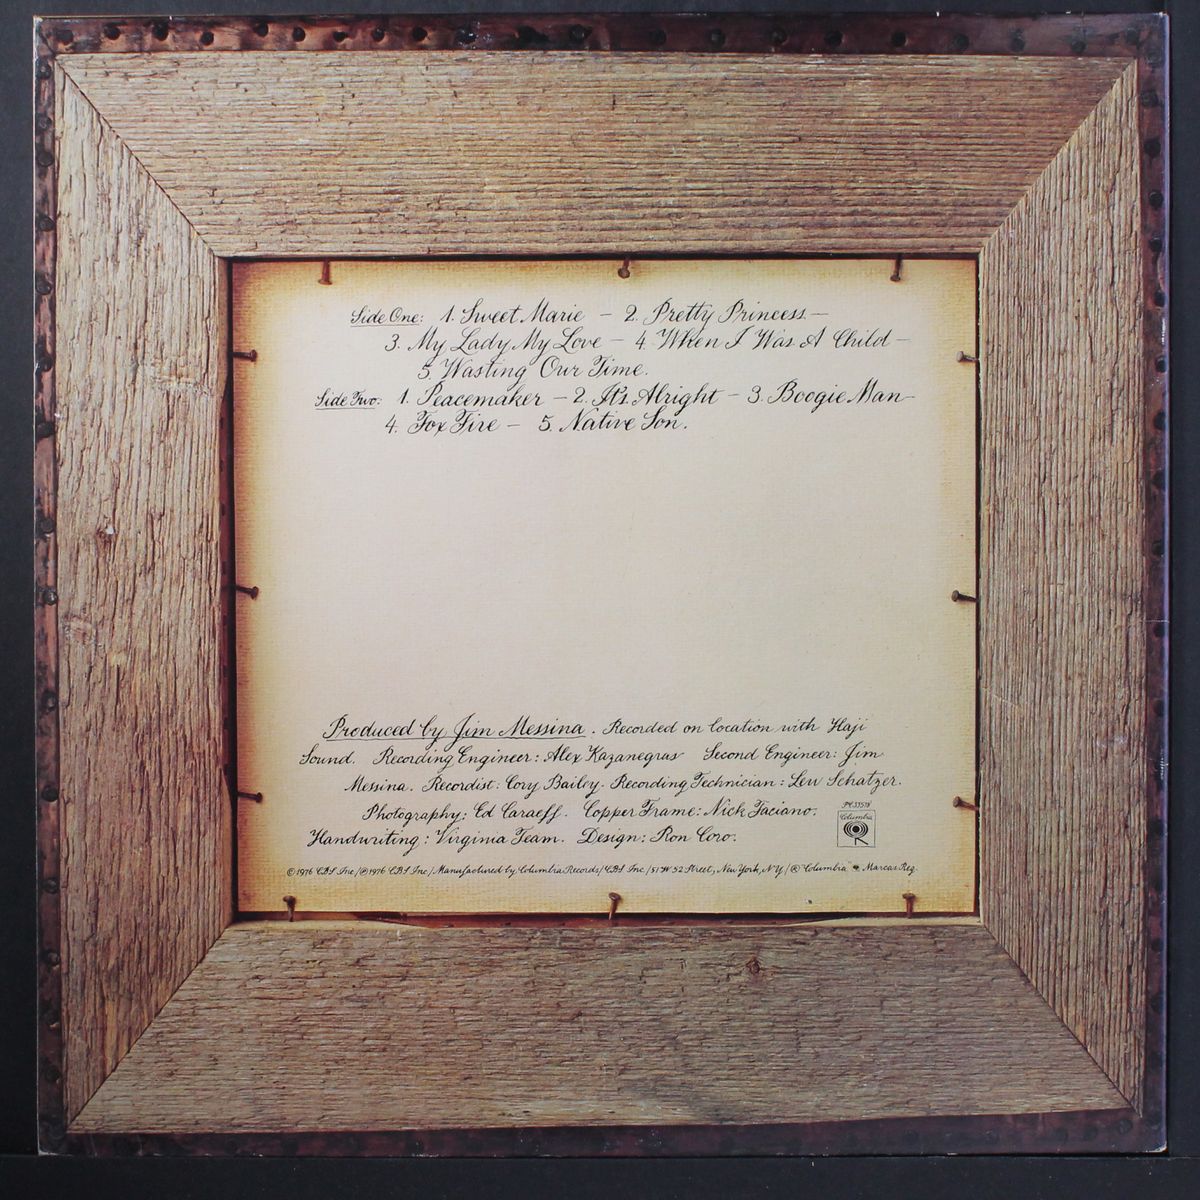 Side One: 1. Sweet Marie – 2. Pretty Princess –
3. My Lady, My Love – 4. When I Was A Child –
5. Wasting Our Time.
Side Two: 1. Peacemaker – 2. It's Alright – 3. Boogie Man –
4. Fox Fire – 5. Native Son.
Produced by Jim Messina. Recorded on location with Haji
Sound. Recording Engineer: Alex Kazanegras Second Engineer: Jim
Messina. Recordist: Cory Bailey. Recording Technician: Lew Schatzer.
Photography: Ed Caraeff. Copper Frame: Nick Faciano.
Handwriting: Virginia Team. Design: Ron Coro.
Columbia
© 1976 CBS Inc./℗ 1976 CBS Inc./Manufactured by Columbia Records/CBS Inc./51 W 52 Street, New York, NY/® "Columbia" Marcas Reg.